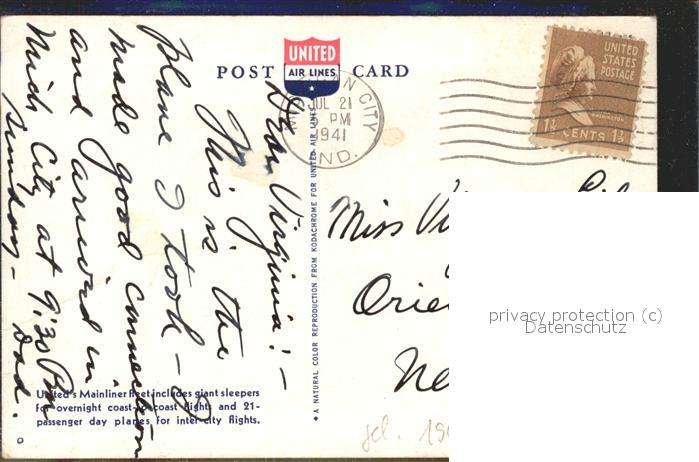 POST CARD
UNITED
AIR LINES
CITY
JUL 21
PM
1941
IND.
UNITED
STATES
POSTAGE
1½ CENTS 1½
Dear Virginia: -
This is the
plane I took - I
made good connection
and arrived in
Mich City at 9:30 PM
Sunday -
Dad.
Miss
United's Mainliner fleet includes giant sleepers
for overnight coast-to-coast flights and 21-
passenger day planes for inter-city flights.
A NATURAL COLOR REPRODUCTION FROM KODACHROME FOR UNITED AIR LINES
privacy protection (c)
Datenschutz